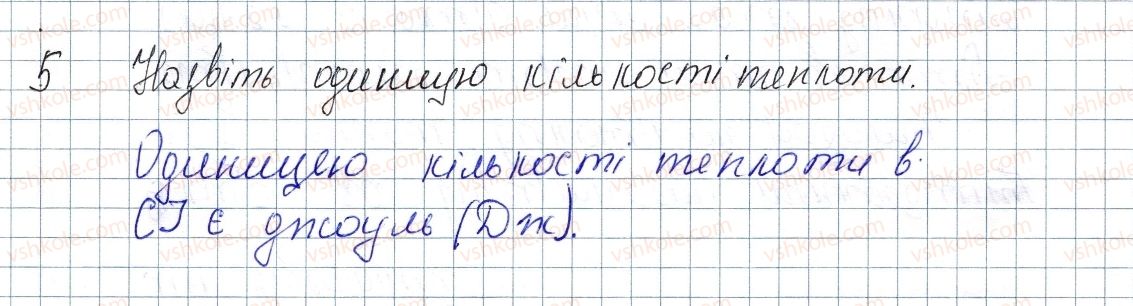 5 Назвіть одиницю кількості теплоти.
Одиницею кількості теплоти в
СІ є джоуль (Дж).